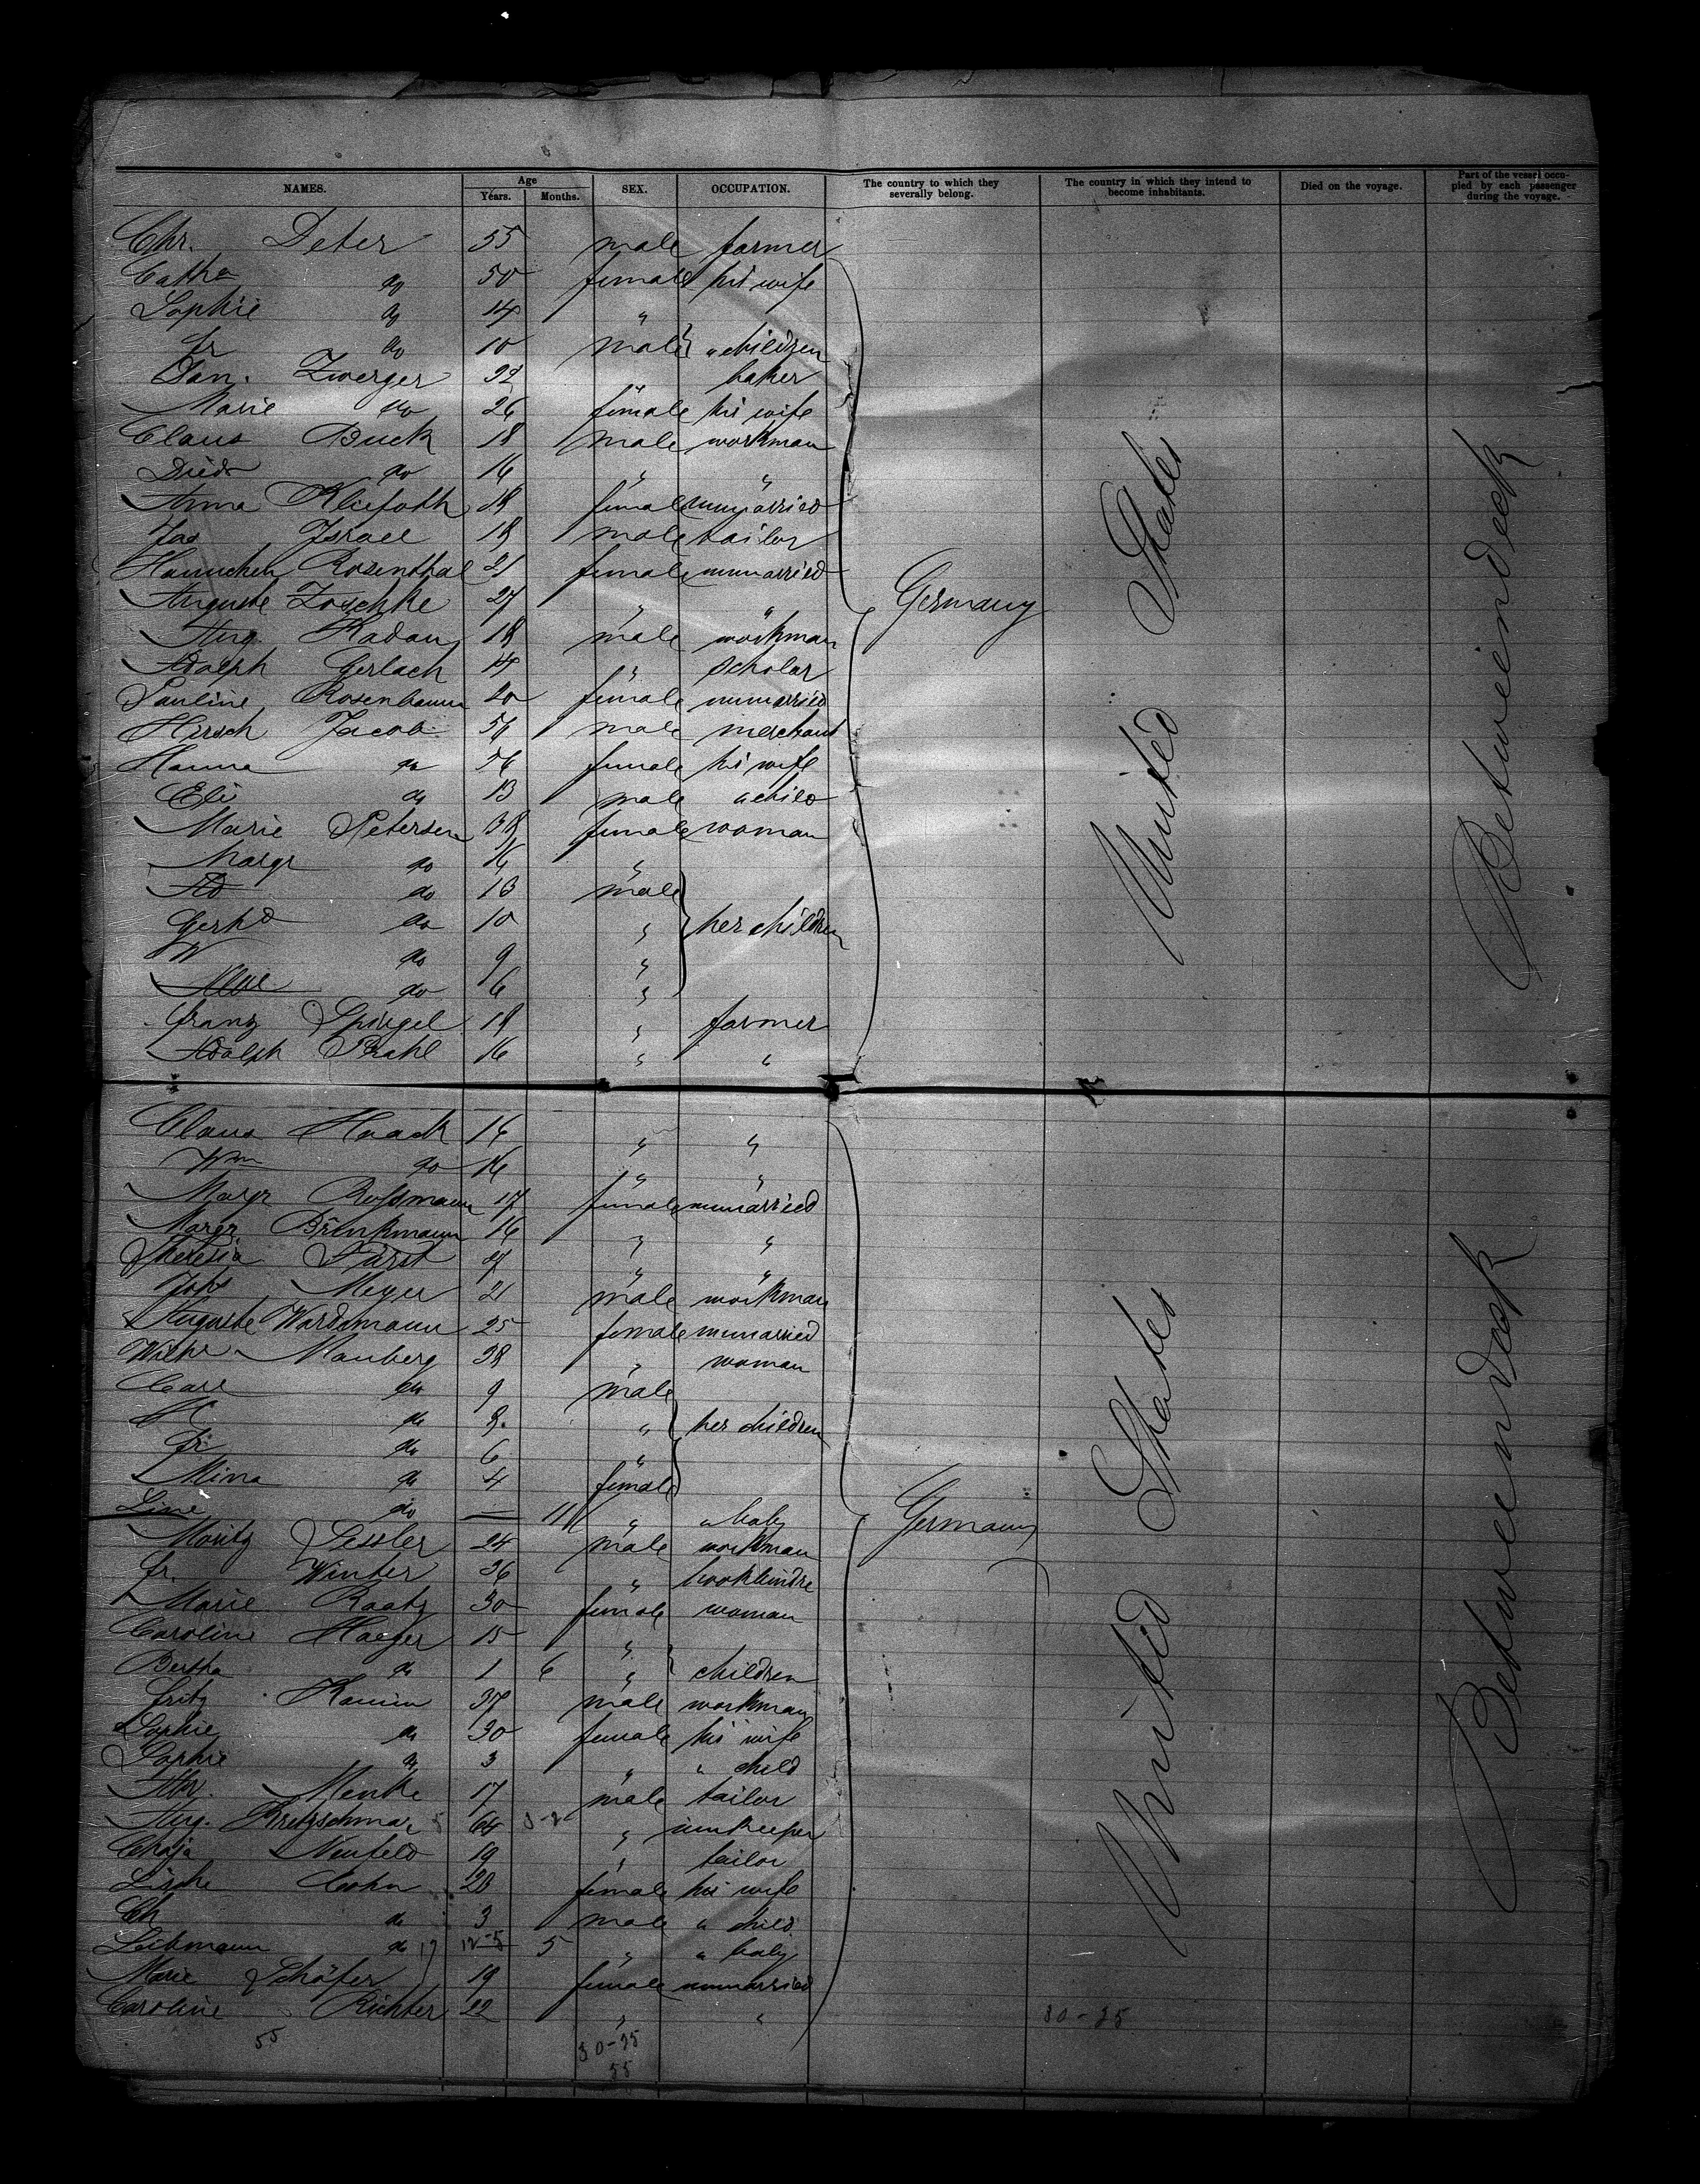 NAMES. Age Years. Months. SEX. OCCUPATION. The country to which they severally belong. The country in which they intend to become inhabitants. Died on the voyage. Part of the vessel occupied by each passenger during the voyage.
Chr. Peter 55 male farmer
Cathа do 50 female his wife
Sophie do 14 "
Fr do 10 male " children
Dan. Zwerger 32 " baker
Marie do 26 female his wife
Claus Buck 18 male workman
Died do 16 " "
Anna Kliefoth 18 female unmarried
Jas Israel 18 male tailor
Hannchen Rosenthal 21 female unmarried
Auguste Zoschke 27 " "
Germany
United States
Betweendeck
Aug. Radau 18 male workman
Adolph Gerlach 14 " scholar
Pauline Rosenbaum 20 female unmarried
Hirsch Jacob 56 male merchant
Hanna do 56 female his wife
Eli do 13 male " child
Marie Petersen 38 female woman
Margr do 16 "
Ad do 13 male
Gerhd do 10 " her children
W do 9 "
do 6 "
Franz Spiegel 18 " farmer
Adolph Prahl 16 " "
Claus Haack 16 " "
Wm do 16 " "
Margr Russmann 17 female unmarried
Margr Brinkmann 16 " "
Theresia Fürst 27 " "
Johs Meyer 21 male workman
Auguste Wardsmann 25 female unmarried
Wilhe Mauberg 38 " woman
Carl do 9 male
H do 8 " her children
Fr do 6 "
Mina do 4 female
Line do — 11 " " baby
Germany
United States
Betweendeck
Moritz Sessler 24 male workman
Fr. Winter 36 " bookbindre
Marie Raatz 30 female woman
Caroline Haeger 15 "
Bertha do 1 6 " children
Fritz Kamin 37 male workman
Sophie do 30 female his wife
Sophie do 3 " " child
Abr. Menke 17 male tailor
Aug. Kretzschmar 64 " innkeeper
Chaja Neufeld 19 " tailor
Lische Cohn 20 female his wife
Ch do 3 male " child
Leikmann do 5 " " baby
Marie Schäfer 19 female unmarried
Caroline Richter 22 " "
55 30-25 30-25
55